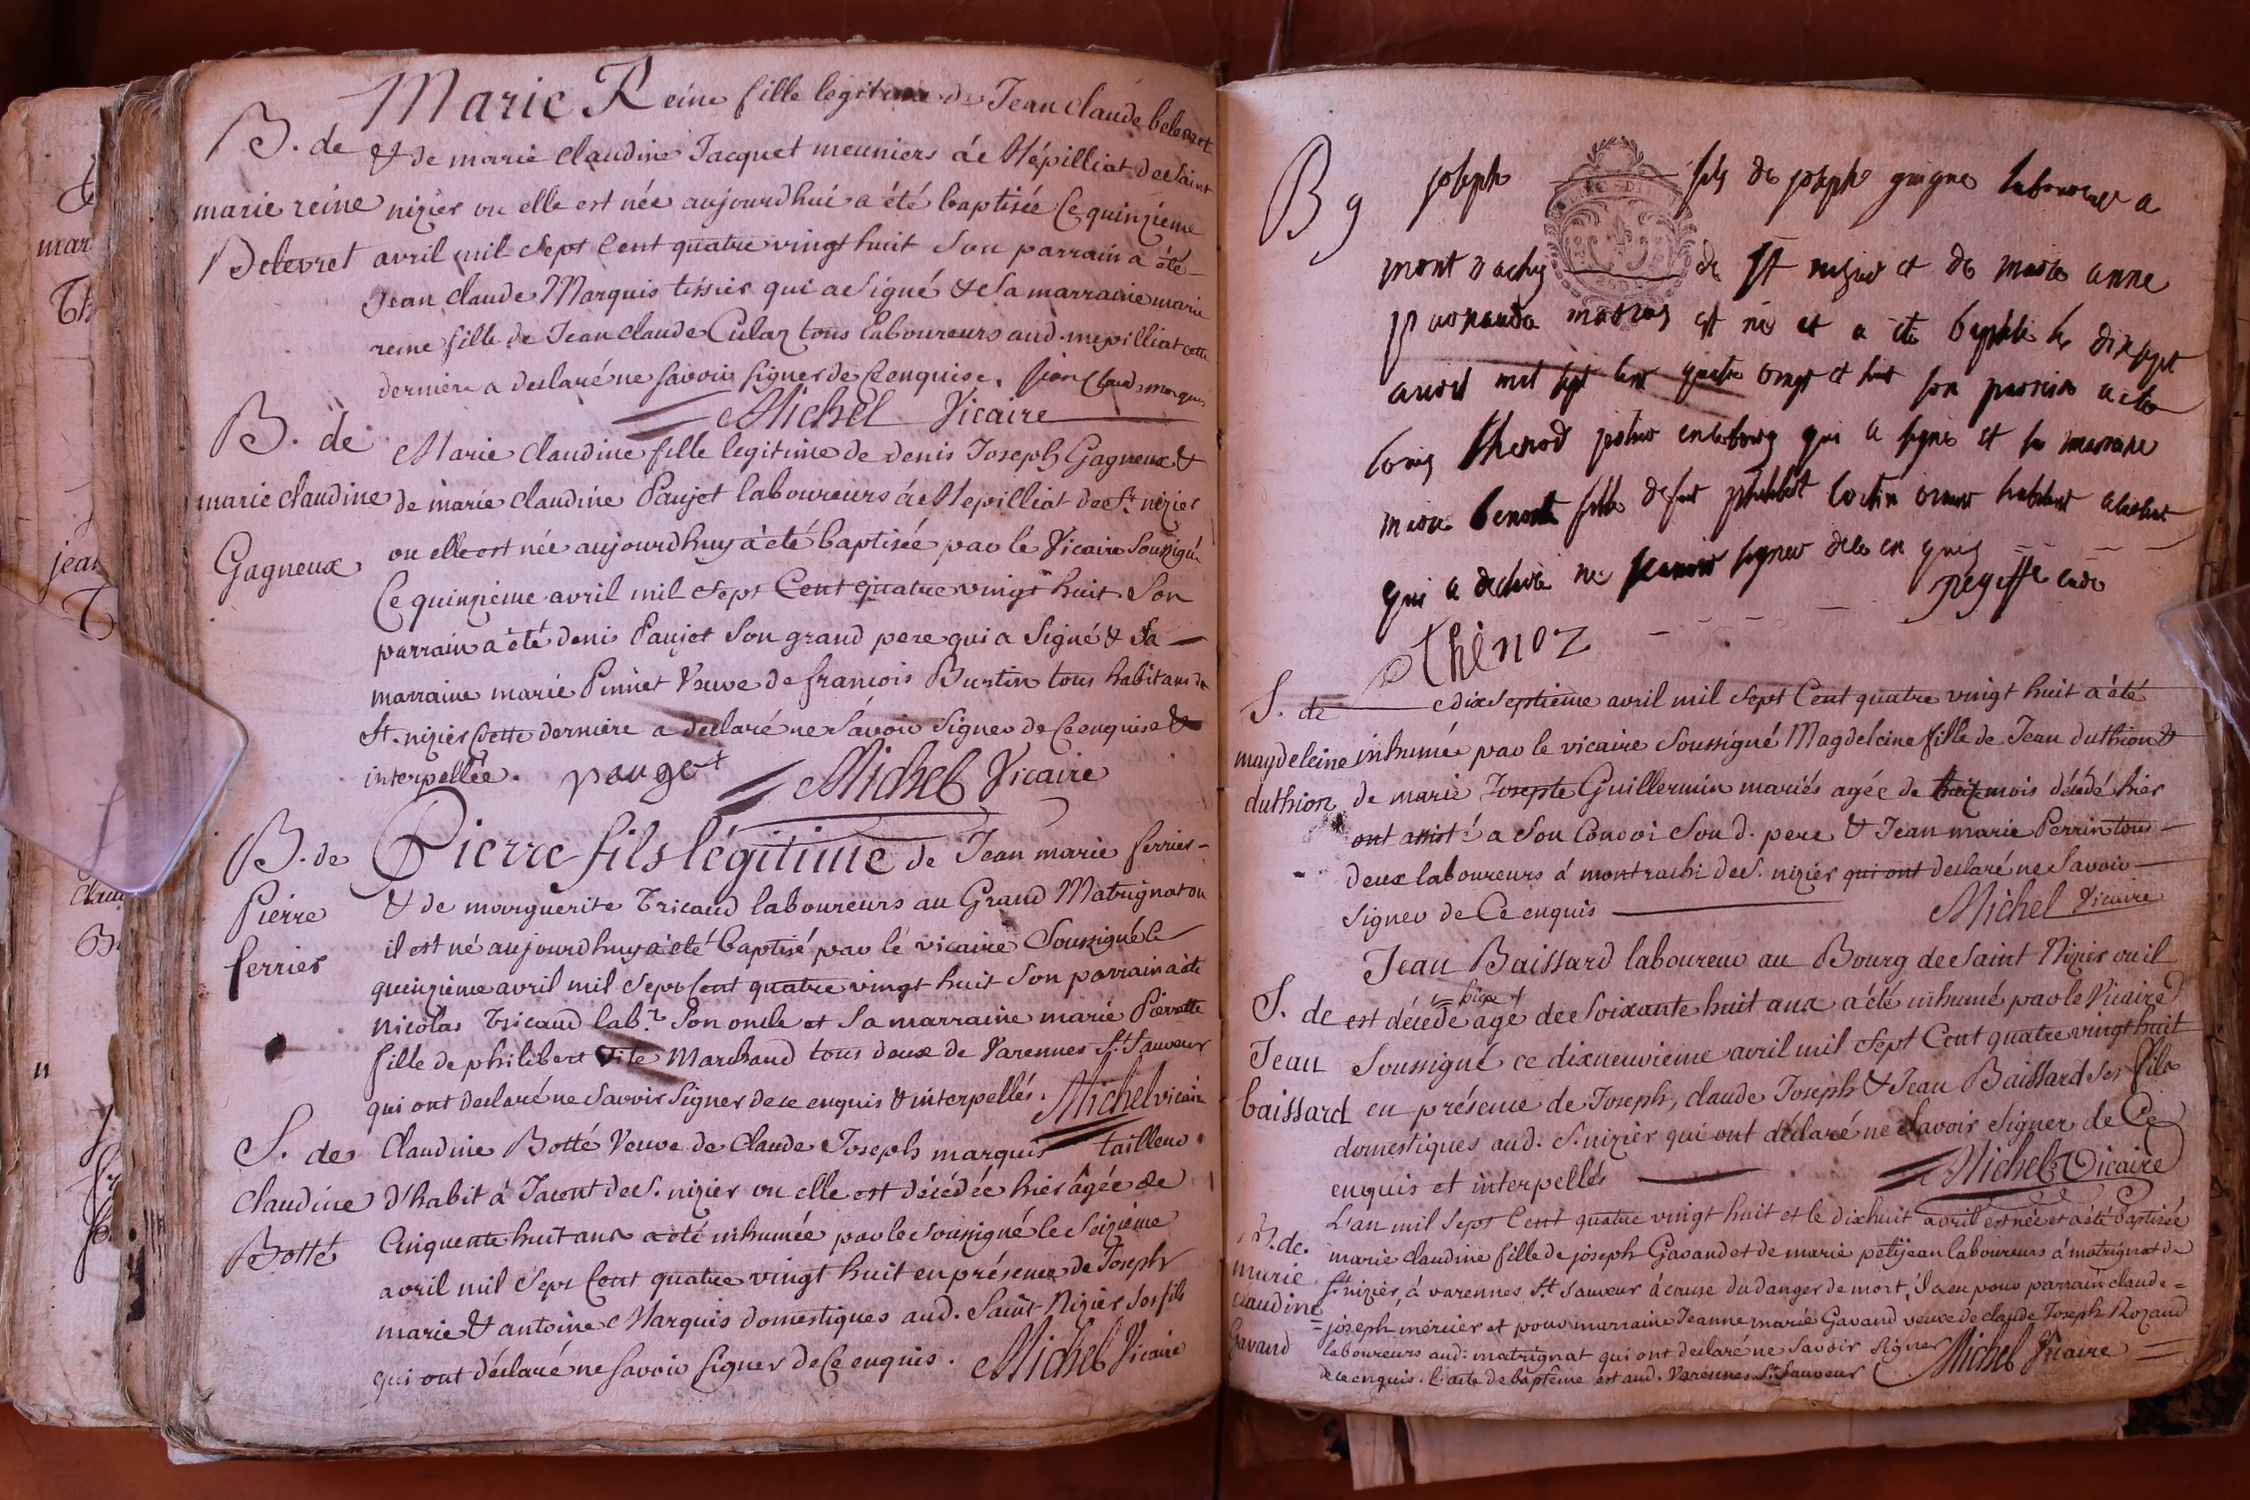 Marie Reine fille legitime de Jean claude belevret
B. de & de marie claudine Jacquet meuniers à Mépilliat de saint
marie reine nizier ou elle est née aujourdhui a été baptisée Ce quinzieme
Belevret avril mil sept cent quatre vingt huit son parrain a été
Jean claude Marquis tissier qui a signé & sa marraine marie
reine fille de Jean claude Culaz tous laboureurs aud. mepilliat cette
derniere a declaré ne savoir signer de ce enquise. jean claude marquis
Michel Vicaire
B. de Marie claudine fille legitime de denis Joseph Gagneux &
marie claudine de marie claudine Paujet laboureurs à Mepilliat de St. nizier
Gagneux ou elle est née aujourdhuy a été baptisée par le Vicaire soussigné
Ce quinzieme avril mil sept cent quatre vingt huit son
parrain a été deni Paujet son grand pere qui a signé & sa
marraine marie Pinnet veuve de francois Burtin tous habitans de
St. nizier cette derniere a declaré ne savoir signer de ce enquise &
interpellée. pauget Michel Vicaire
B. de Pierre fils légitime de Jean marie ferrier
Pierre & de marguerite Tricaud laboureurs au Grand Matrignat ou
ferrier il est né aujourdhuy a été baptisé par le vicaire soussigné le
quinzieme avril mil sept cent quatre vingt huit son parrain a été
nicolas Tricaud labr. son oncle et sa marraine marie Pierrette
fille de philibert Marchand tous deux de Varennes St. Sauveur
qui ont declaré ne savoir signer de ce enquis & interpellés. Michel vicaire
S. de Claudine Botté Veuve de Claude Joseph marquis tailleur
Claudine d'habit à Jacont de S. nizier ou elle est décédée hier âgée de
Botté Cinquante huit ans a été inhumée par le soussigné le seizieme
avril mil sept cent quatre vingt huit en présence de Joseph
marie & antoine Marquis domestiques aud. Saint Nizier ses fils
qui ont déclaré ne savoir signer de ce enquis. Michel Vicaire
B g joseph fils de joseph guigne laboureur a
mont rachy de St nizier et de marie anne
maries est né et a été baptisé le dix sept
avril mil sept cent quatre vingt et huit son parrain a ete
louis thenod qui a signé et sa marraine
marie benoite fille defunt philibert
qui a declaré ne scavoir signer de ce en quis
thenoz
S. de Ce dix septieme avril mil sept cent quatre vingt huit a été
magdeleine inhumée par le vicaire soussigné Magdeleine fille de Jean duthion &
duthion de marie Josepte Guillermin mariés agée de mois décédé hier
ont assisté a son convoi son d. pere & Jean marie Perrin tous
deux laboureurs à montrachi de S. nizier qui ont declaré ne savoir
signer de ce enquis Michel Vicaire
Jean Baissard laboureur au Bourg de Saint Nizier ou il
S. de est décédé hier agé de soixante huit ans a été inhumé par le Vicaire
Jean soussigné ce dixneuvieme avril mil sept cent quatre vingt huit
baissard en présence de Joseph, claude Joseph & Jean Baissard ses fils
domestiques aud. S. nizier qui ont déclaré ne savoir signer de ce
enquis et interpellés Michel Vicaire
L'an mil sept cent quatre vingt huit et le dixhuit avril est née et a été baptisée
B. de. marie claudine fille de joseph Gavand et de marie petijean laboureurs à matrignat de
marie St nizier, à varennes St. Sauveur à cause du danger de mort, il a eu pour parrain claude =
claudine = joseph mercier et pour marraine Jeanne marie Gavand veuve de claude Joseph Rozand
Gavand laboureurs aud: matrignat qui ont declaré ne savoir signer Michel Vicaire
de ce enquis. l'acte de baptême est aud. Varennes St. Sauveur